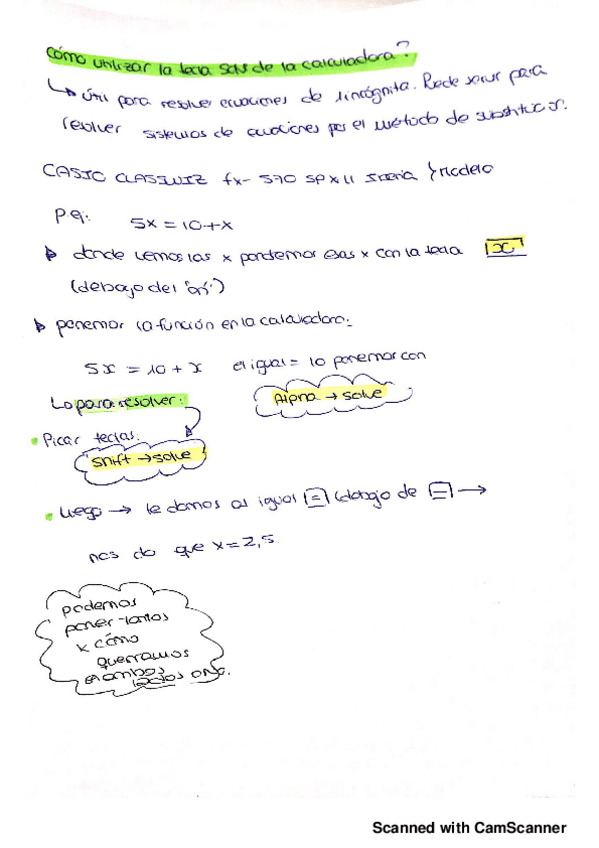 Cómo utilizar la tecla solve de la calculadora?
↳ útil para resolver ecuaciones de 1 incógnita. Puede servir para
resolver sistemas de ecuaciones por el método de substitución.
CASIO CLASSWIZ fx-570 SPXII Iberia } Modelo
P.ej: 5x = 10+x
donde vemos las x pondremos esas x con la tecla x
(debajo del "on")
ponemos la función en la calculadora:
5x = 10 + x el igual = lo ponemos con
Alpha → solve
para resolver:
Picar teclas:
Shift → solve
Luego → le damos al igual = (debajo de =) →
nos da que x = 2,5.
podemos
poner tantos
x cómo
querramos
en ambos
lados
Scanned with CamScanner